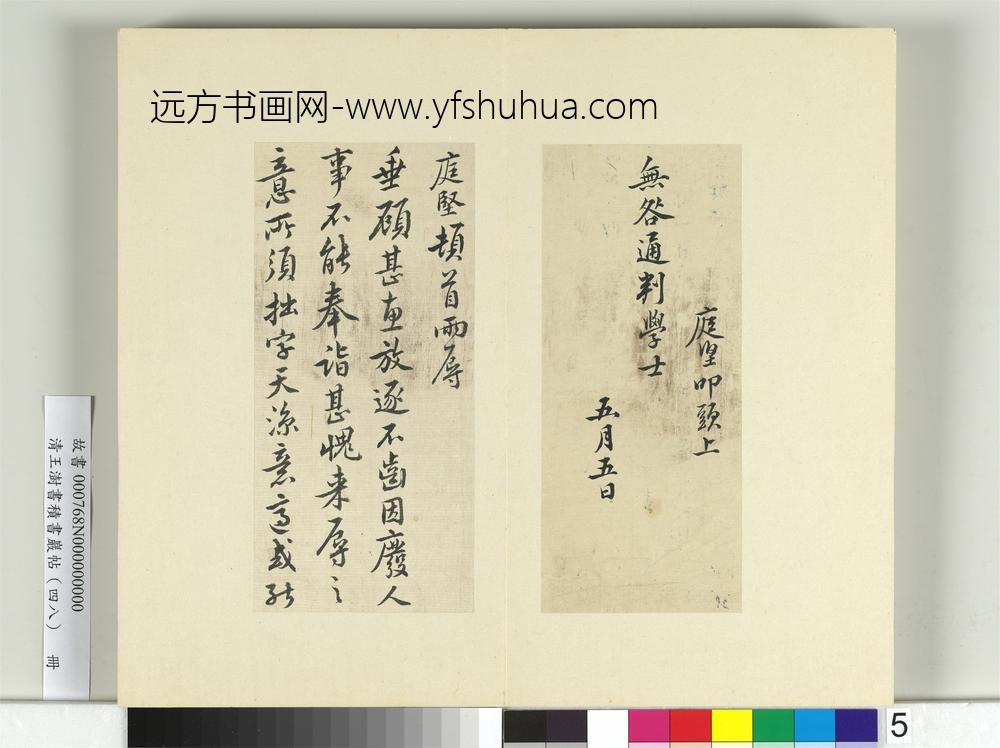 远方书画网-www.yfshuhua.com
庭堅叩頭上
無咎通判學士
五月五日
庭堅頓首兩辱
垂顧甚惠放逐不齒因廢人
事不能奉詣甚愧来辱之
意所須拙字天涼意適或能
故書 000768N000000000
清王澍書積書巖帖(四八) 冊
5